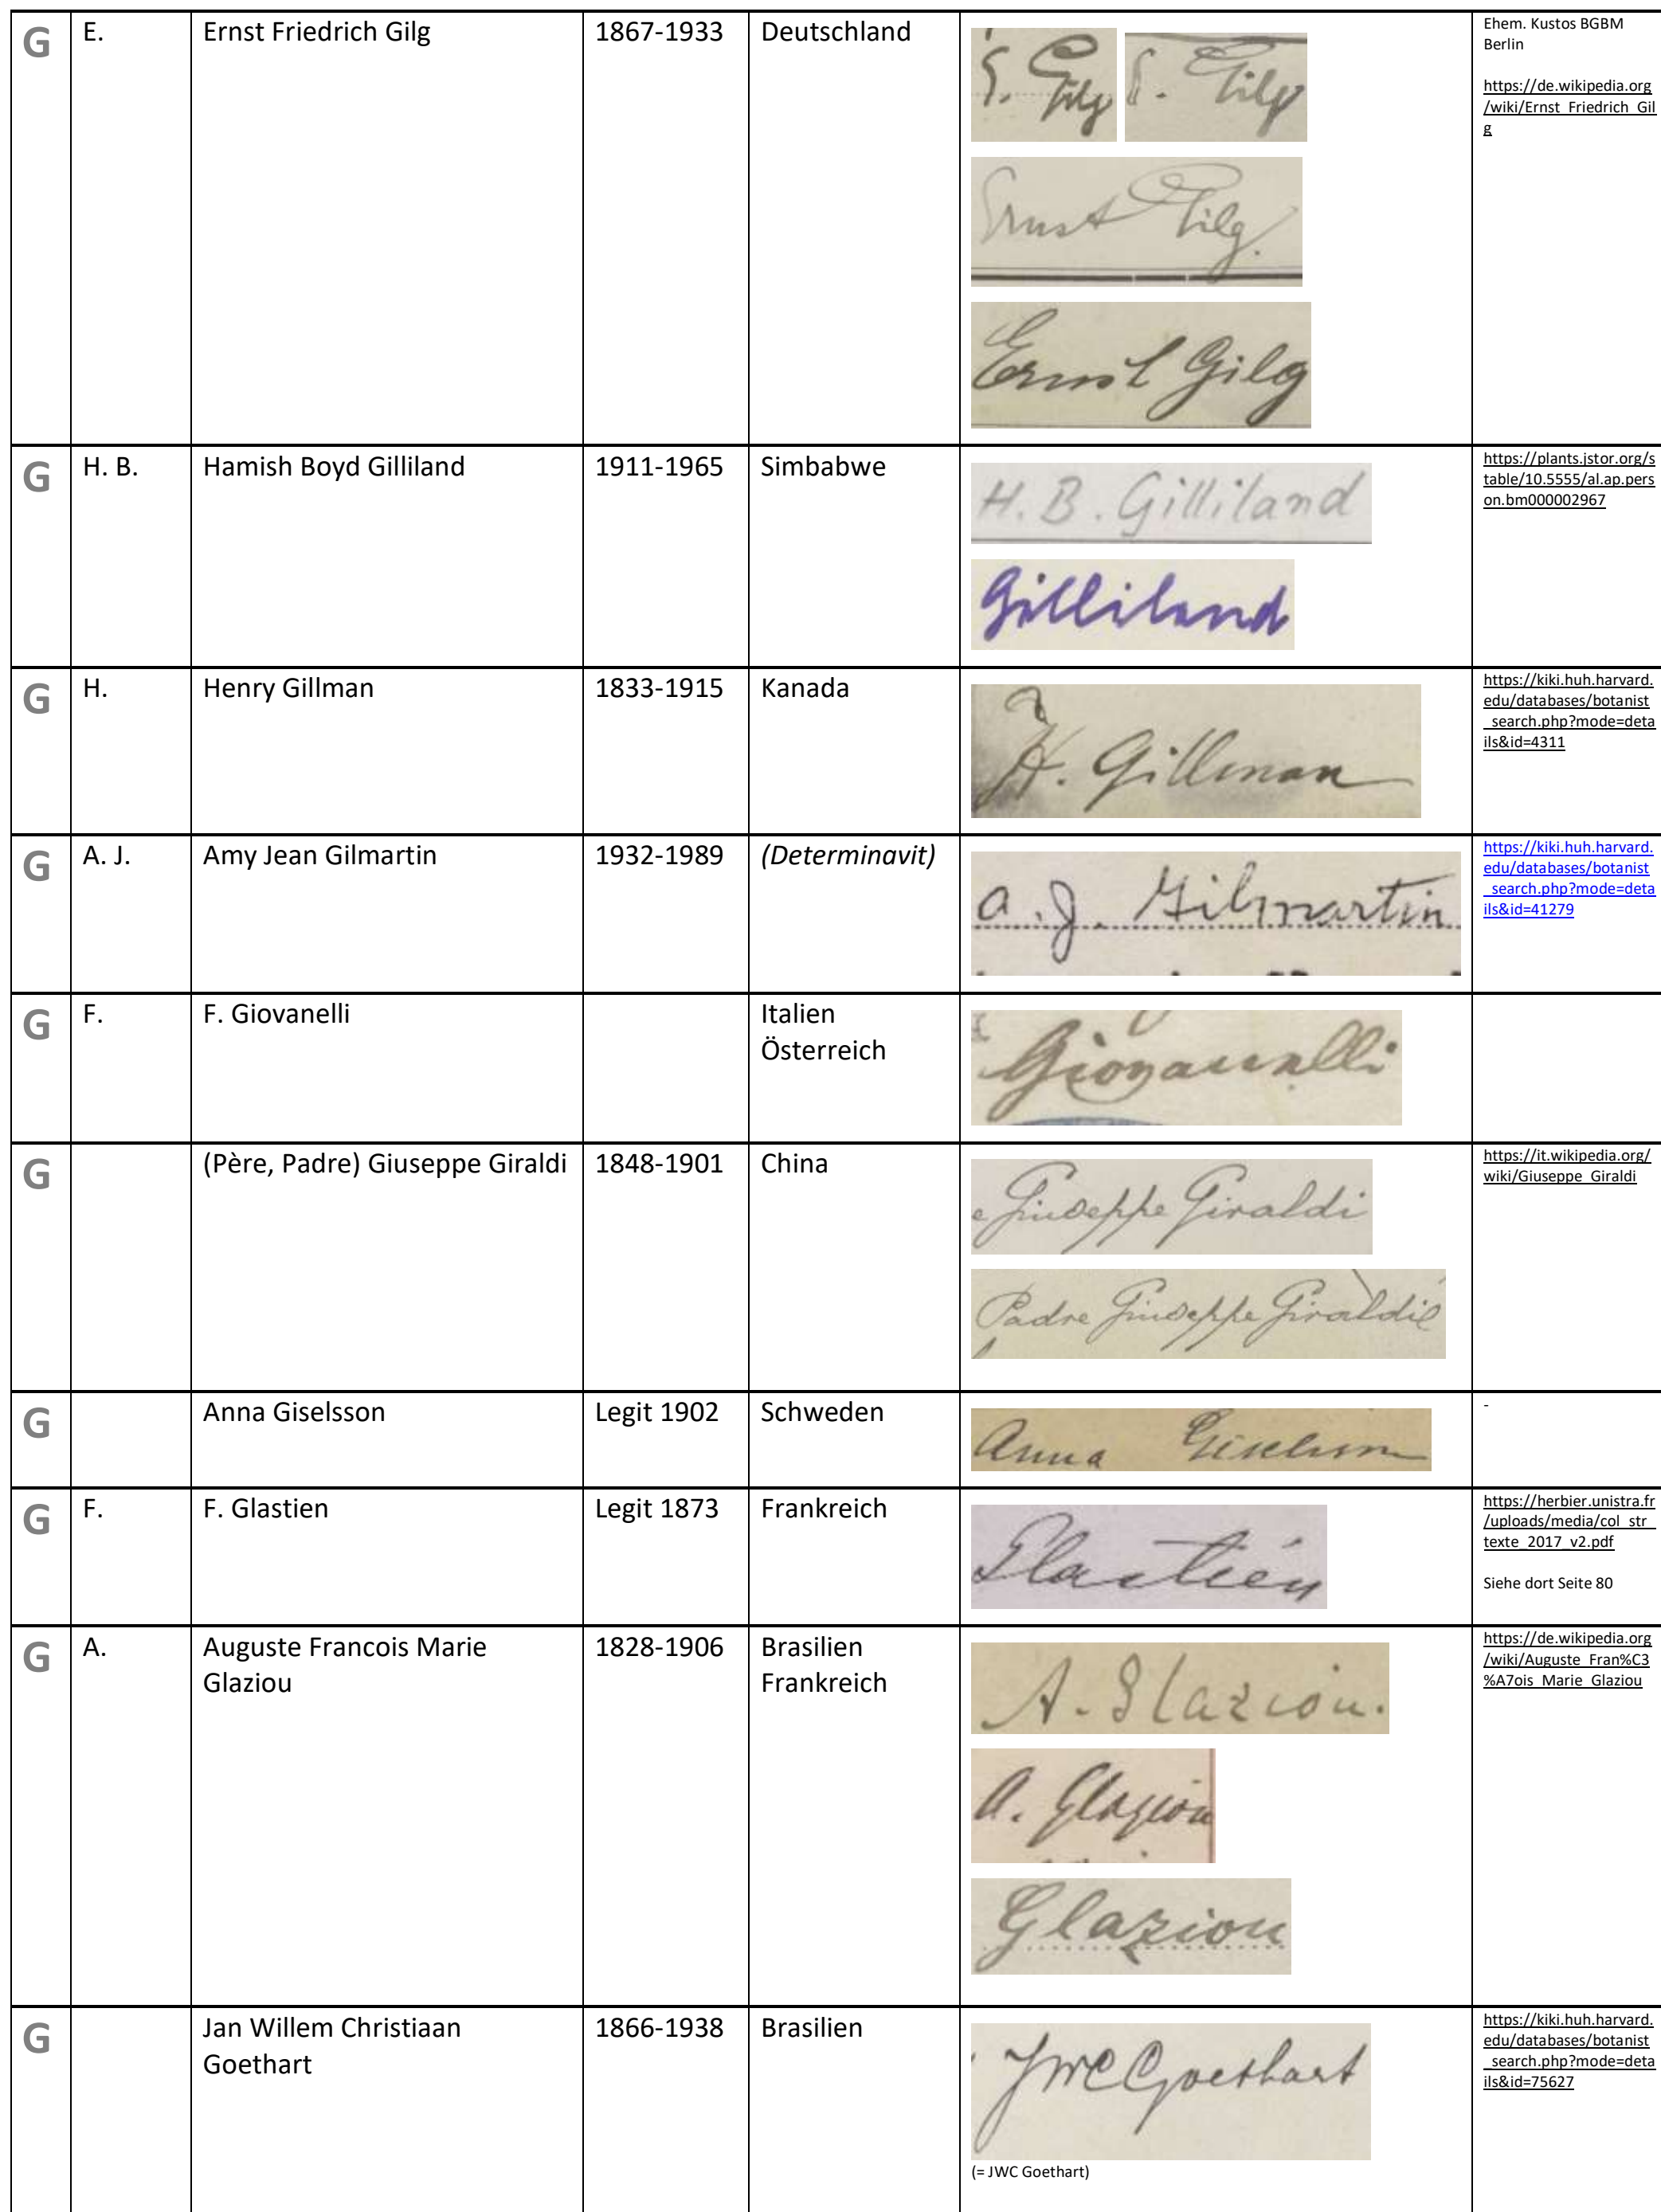 G E. Ernst Friedrich Gilg 1867-1933 Deutschland
E. Gilg E. Gilg
Ernst Gilg.
Ernst Gilg
Ehem. Kustos BGBM
Berlin
https://de.wikipedia.org
/wiki/Ernst_Friedrich_Gil
g
G H. B. Hamish Boyd Gilliland 1911-1965 Simbabwe
H. B. Gilliland
Gilliland
https://plants.jstor.org/s
table/10.5555/al.ap.pers
on.bm000002967
G H. Henry Gillman 1833-1915 Kanada
H. Gillman
https://kiki.huh.harvard.
edu/databases/botanist
_search.php?mode=deta
ils&id=4311
G A. J. Amy Jean Gilmartin 1932-1989 (Determinavit)
A. J. Gilmartin
https://kiki.huh.harvard.
edu/databases/botanist
_search.php?mode=deta
ils&id=41279
G F. F. Giovanelli Italien
Österreich
Giovanelli
G (Père, Padre) Giuseppe Giraldi 1848-1901 China
e Giuseppe Giraldi
Padre Giuseppe Giraldi
https://it.wikipedia.org/
wiki/Giuseppe_Giraldi
G Anna Giselsson Legit 1902 Schweden
Anna Giselsson
-
G F. F. Glastien Legit 1873 Frankreich
Glastien
https://herbier.unistra.fr
/uploads/media/col_str_
texte_2017_v2.pdf
Siehe dort Seite 80
G A. Auguste Francois Marie
Glaziou 1828-1906 Brasilien
Frankreich
A. Glaziou.
A. Glaziou
Glaziou
https://de.wikipedia.org
/wiki/Auguste_Fran%C3
%A7ois_Marie_Glaziou
G Jan Willem Christiaan
Goethart 1866-1938 Brasilien
JWC Goethart
(= JWC Goethart)
https://kiki.huh.harvard.
edu/databases/botanist
_search.php?mode=deta
ils&id=75627